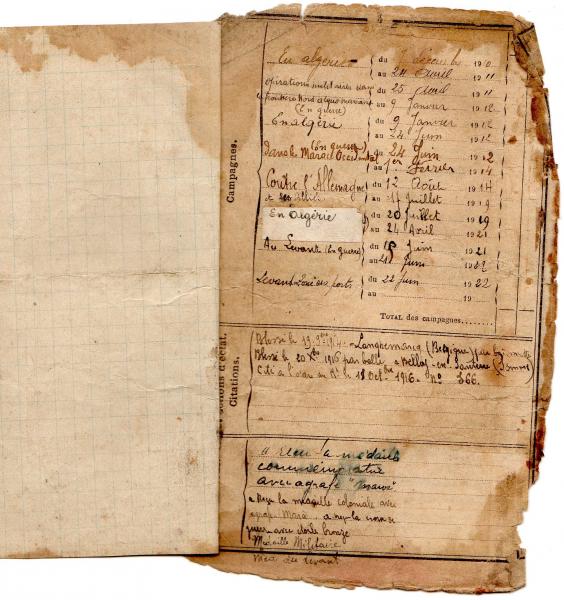 Campagnes.
En Algérie du 7 décembre 1910
au 24 Avril 1911
opérations militaires sur du 25 Avril 1911
frontière Nord algéro marocaine au 9 Janvier 1912
(En guerre)
En Algérie du 9 Janvier 1912
au 24 Juin 1912
(En guerre)
Dans le Maroc Occidental du 24 Juin 1912
au 1er Février 1914
Contre l'Allemagne du 12 Août 1914
et ses alliés au 19 Juillet 1919
En Algérie du 20 Juillet 1919
au 24 Avril 1921
Au Levant (En guerre) du Juin 1921
au 21 Juin 1922
Levant Zone des ports du 22 Juin 1922
au 19
TOTAL des campagnes
Actions d'éclat.
Citations.
Blessé le 1914 Langhemarcq (Belgique)
Blessé le 20 1916 par balle à Belloy-en-Santerre (Somme)
Cité à l'ordre du le 18 Octobre 1916 - N° 366.
a reçu la médaille
commémorative
avec agrafe "Maroc"
a Reçu la médaille coloniale avec
agrafe Maroc a reçu la croix de
guerre avec étoile bronze
Médaille Militaire
Med du Levant